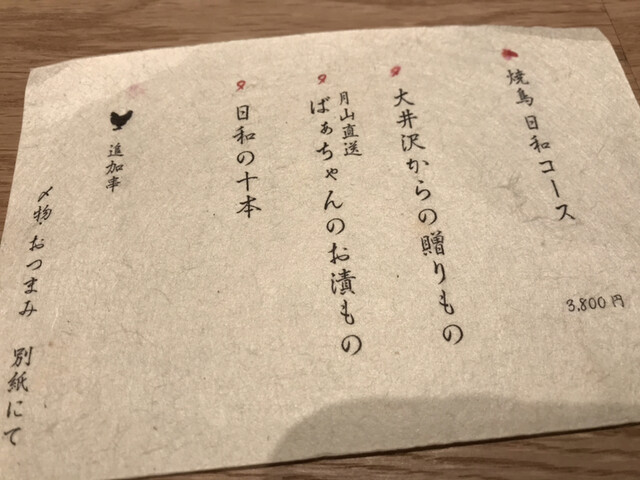 焼鳥 日和コース
3,800円
大井沢からの贈りもの
月山直送
ばぁちゃんのお漬もの
日和の十本
追加事
〆物・おつまみ 別紙にて